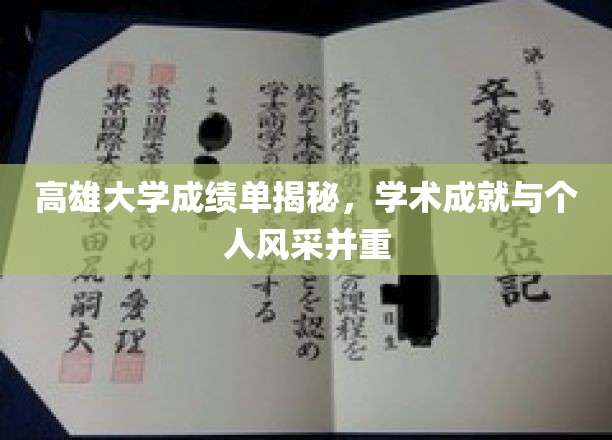 高雄大学成绩单揭秘，学术成就与个
人风采并重
第 号
卒業証 学位記
本学商学部 定の課程を
修めて本学 ことを認め
学士(商学)の学 する
平成
東京国際大学 田村愛理
東京国際大学長田尻嗣夫